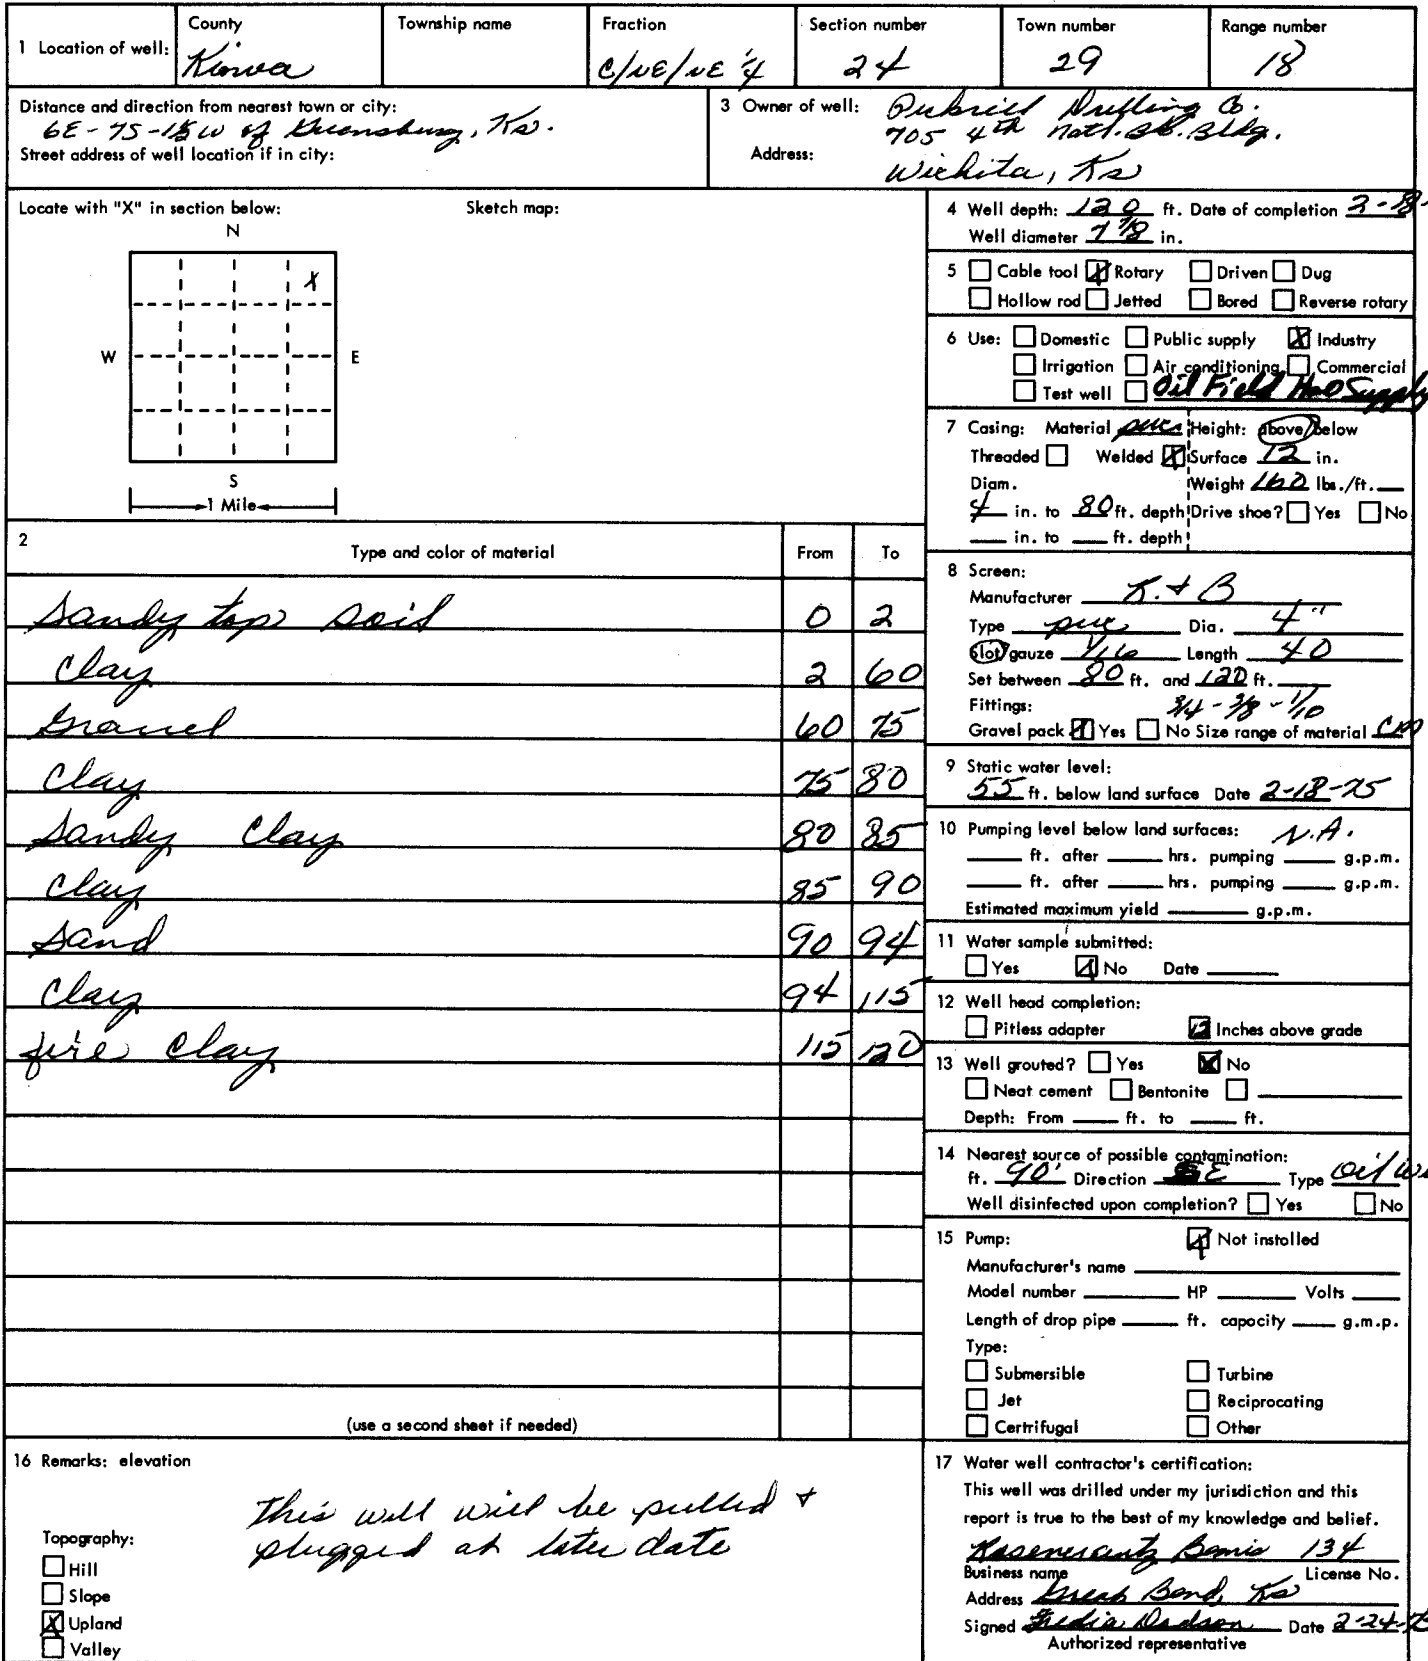 1 Location of well:
County
Kiowa
Township name
Fraction
C/NE/NE 1/4
Section number
24
Town number
29
Range number
18
Distance and direction from nearest town or city:
6E-7S-1½W of Greensburg, Ks.
Street address of well location if in city:
3 Owner of well: Drilling Co.
705 4th Natl. Bk. Bldg.
Address:
Wichita, Ks
Locate with "X" in section below:
Sketch map:
N
X
W
E
S
1 Mile
2
Type and color of material
From
To
Sandy top soil 0 2
Clay 2 60
Gravel 60 75
Clay 75 80
Sandy Clay 80 85
Clay 85 90
Sand 90 94
Clay 94 115
fire clay 115 120
(use a second sheet if needed)
4 Well depth: 120 ft. Date of completion 2-18-
Well diameter 7 7/8 in.
5 Cable tool X Rotary Driven Dug
Hollow rod Jetted Bored Reverse rotary
6 Use: Domestic Public supply X Industry
Irrigation Air conditioning Commercial
Test well Oil Field H2O Supply
7 Casing: Material pvc Height: above/below
Threaded Welded X Surface 12 in.
Diam. Weight 160 lbs./ft.
4 in. to 80 ft. depth Drive shoe? Yes No
in. to ft. depth
8 Screen:
Manufacturer K. + B
Type pvc Dia. 4"
Slot/gauze 1/16 Length 40
Set between 80 ft. and 120 ft.
Fittings: 3/4 - 3/8 - 1/10
Gravel pack X Yes No Size range of material
9 Static water level:
55 ft. below land surface Date 2-18-75
10 Pumping level below land surfaces: N.A.
ft. after hrs. pumping g.p.m.
ft. after hrs. pumping g.p.m.
Estimated maximum yield g.p.m.
11 Water sample submitted:
Yes X No Date
12 Well head completion:
Pitless adapter 12 Inches above grade
13 Well grouted? Yes X No
Neat cement Bentonite
Depth: From ft. to ft.
14 Nearest source of possible contamination:
ft. 90' Direction SE Type Oil
Well disinfected upon completion? Yes No
15 Pump: X Not installed
Manufacturer's name
Model number HP Volts
Length of drop pipe ft. capacity g.m.p.
Type:
Submersible Turbine
Jet Reciprocating
Certrifugal Other
16 Remarks: elevation
This well will be pulled +
plugged at later date
Topography:
Hill
Slope
X Upland
Valley
17 Water well contractor's certification:
This well was drilled under my jurisdiction and this
report is true to the best of my knowledge and belief.
Rosencrantz Bemis 134
Business name License No.
Address Great Bend, Ks
Signed Dodson Date 2-24-75
Authorized representative